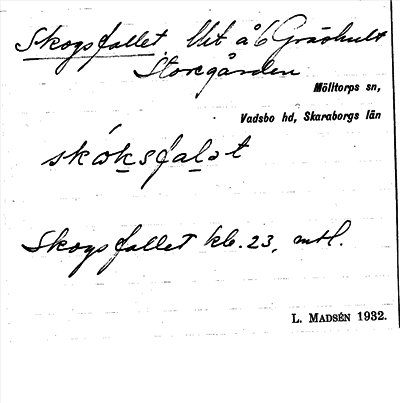 Skogsfallet. Ut å b Gräshult
Storegården
Mölltorps sn,
Vadsbo hd, Skaraborgs län
skóksfalət
Skogsfallet kb. 23, mtl.
L. MADSÉN 1932.